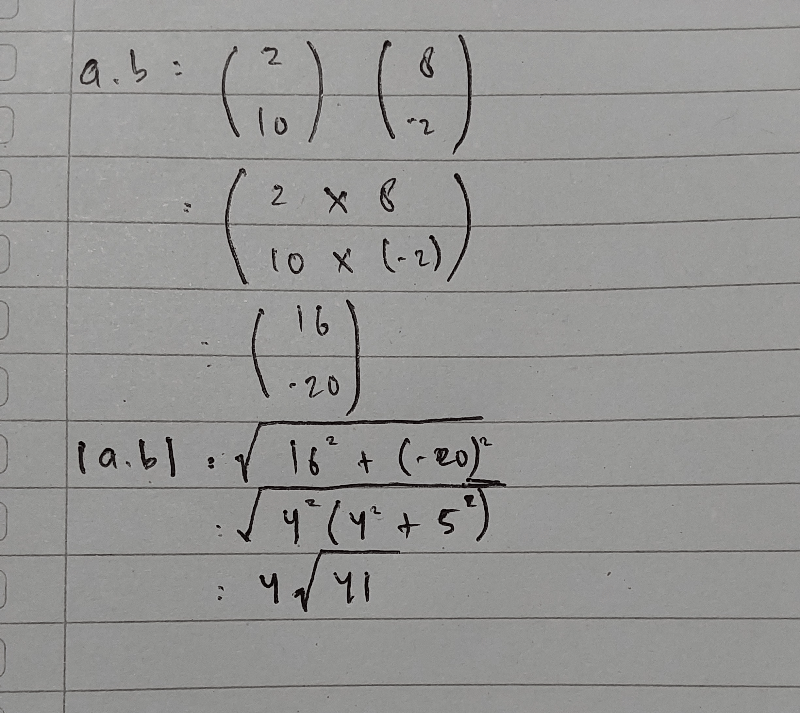 a.b = (2 10) (8 -2)
= (2 × 8 10 × (-2))
= (16 -20)
|a.b| = √16² + (-20)²
= √4²(4² + 5²)
= 4√41